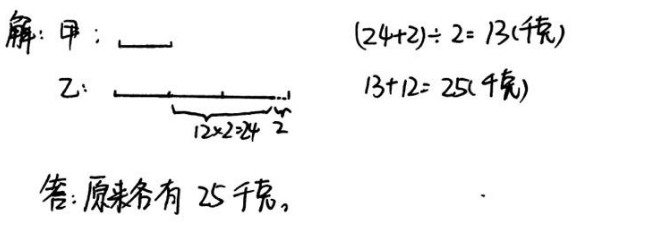 解：甲：
(24+2)÷2=13(千克)
乙：
13+12=25(千克)
12×2=24 2
答：原来各有 25 千克。